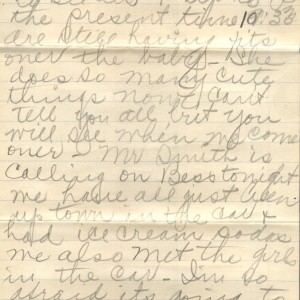 the present time 10
are still having fits
over the baby - She
does so many cute
things now I can't
tell you all but you
will see when we come
over - Mr Smith is
calling on Bess tonight
we have all just been
up town in the car &
had ice cream sodas
we also met the girls
in the car - I'm so
afraid its going to